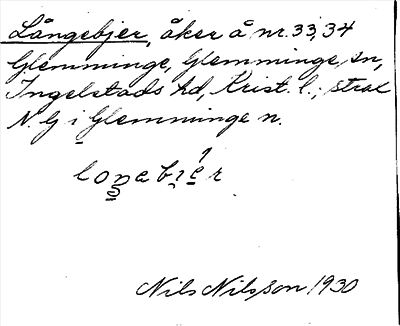 Långebjer, åker å nr. 33, 34
Glemminge, Glemminge sn,
Ingelstads hd, Krist. l.; strax
N. G i Glemminge n.
Nils Nilsson 1930